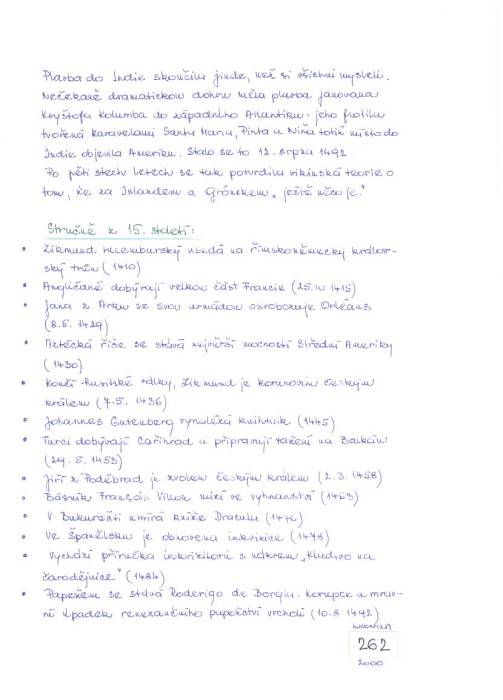 Plavba do Indie skončila jinde, než si všichni mysleli.
Nečekaně dramatickou dohru měla plavba Janovana
Kryštofa Kolumba do západního Atlantiku: jeho flotila
tvořená karavelami Santa Maria, Pinta a Niña totiž místo do
Indie objevila Ameriku. Stalo se to 12. srpna 1492
Po pěti stech letech se tak potvrdila vikinská teorie o
tom, že za Islandem a Grónskem „ještě něco je."
Stručně z 15. století:
• Zikmund Lucemburský usedá na římskoněmecký královský trůn (1410)
• Angličané dobývají velkou část Francie (25.10 1415)
• Jana z Arku se svou armádou osvobozuje Orléans
(8.5. 1429)
• Aztécká říše se stává největší mocností Střední Ameriky
(1430)
• Končí husitské války, Zikmund je korunován českým
králem (7.5. 1436)
• Johannes Gutenberg vynalézá knihtisk (1445)
• Turci dobývají Cařihrad a připravují tažení na Balkán
(29. 5. 1453)
• Jiří z Poděbrad je zvolen českým králem (2.3. 1458)
• Básník François Villon mizí ve vyhnanství (1463)
• V Bukurešti umírá kníže Dracula (1476)
• Ve Španělsku je obnovena inkvizice (1478)
• Vychází příručka inkvizitorů s názvem „Kladivo na
čarodějnice" (1484)
• Papežem se stává Roderigo de Borgia. Korupce a mrav-
ní úpadek renezančního papežství vrcholí (10.8 1492)
262
2000